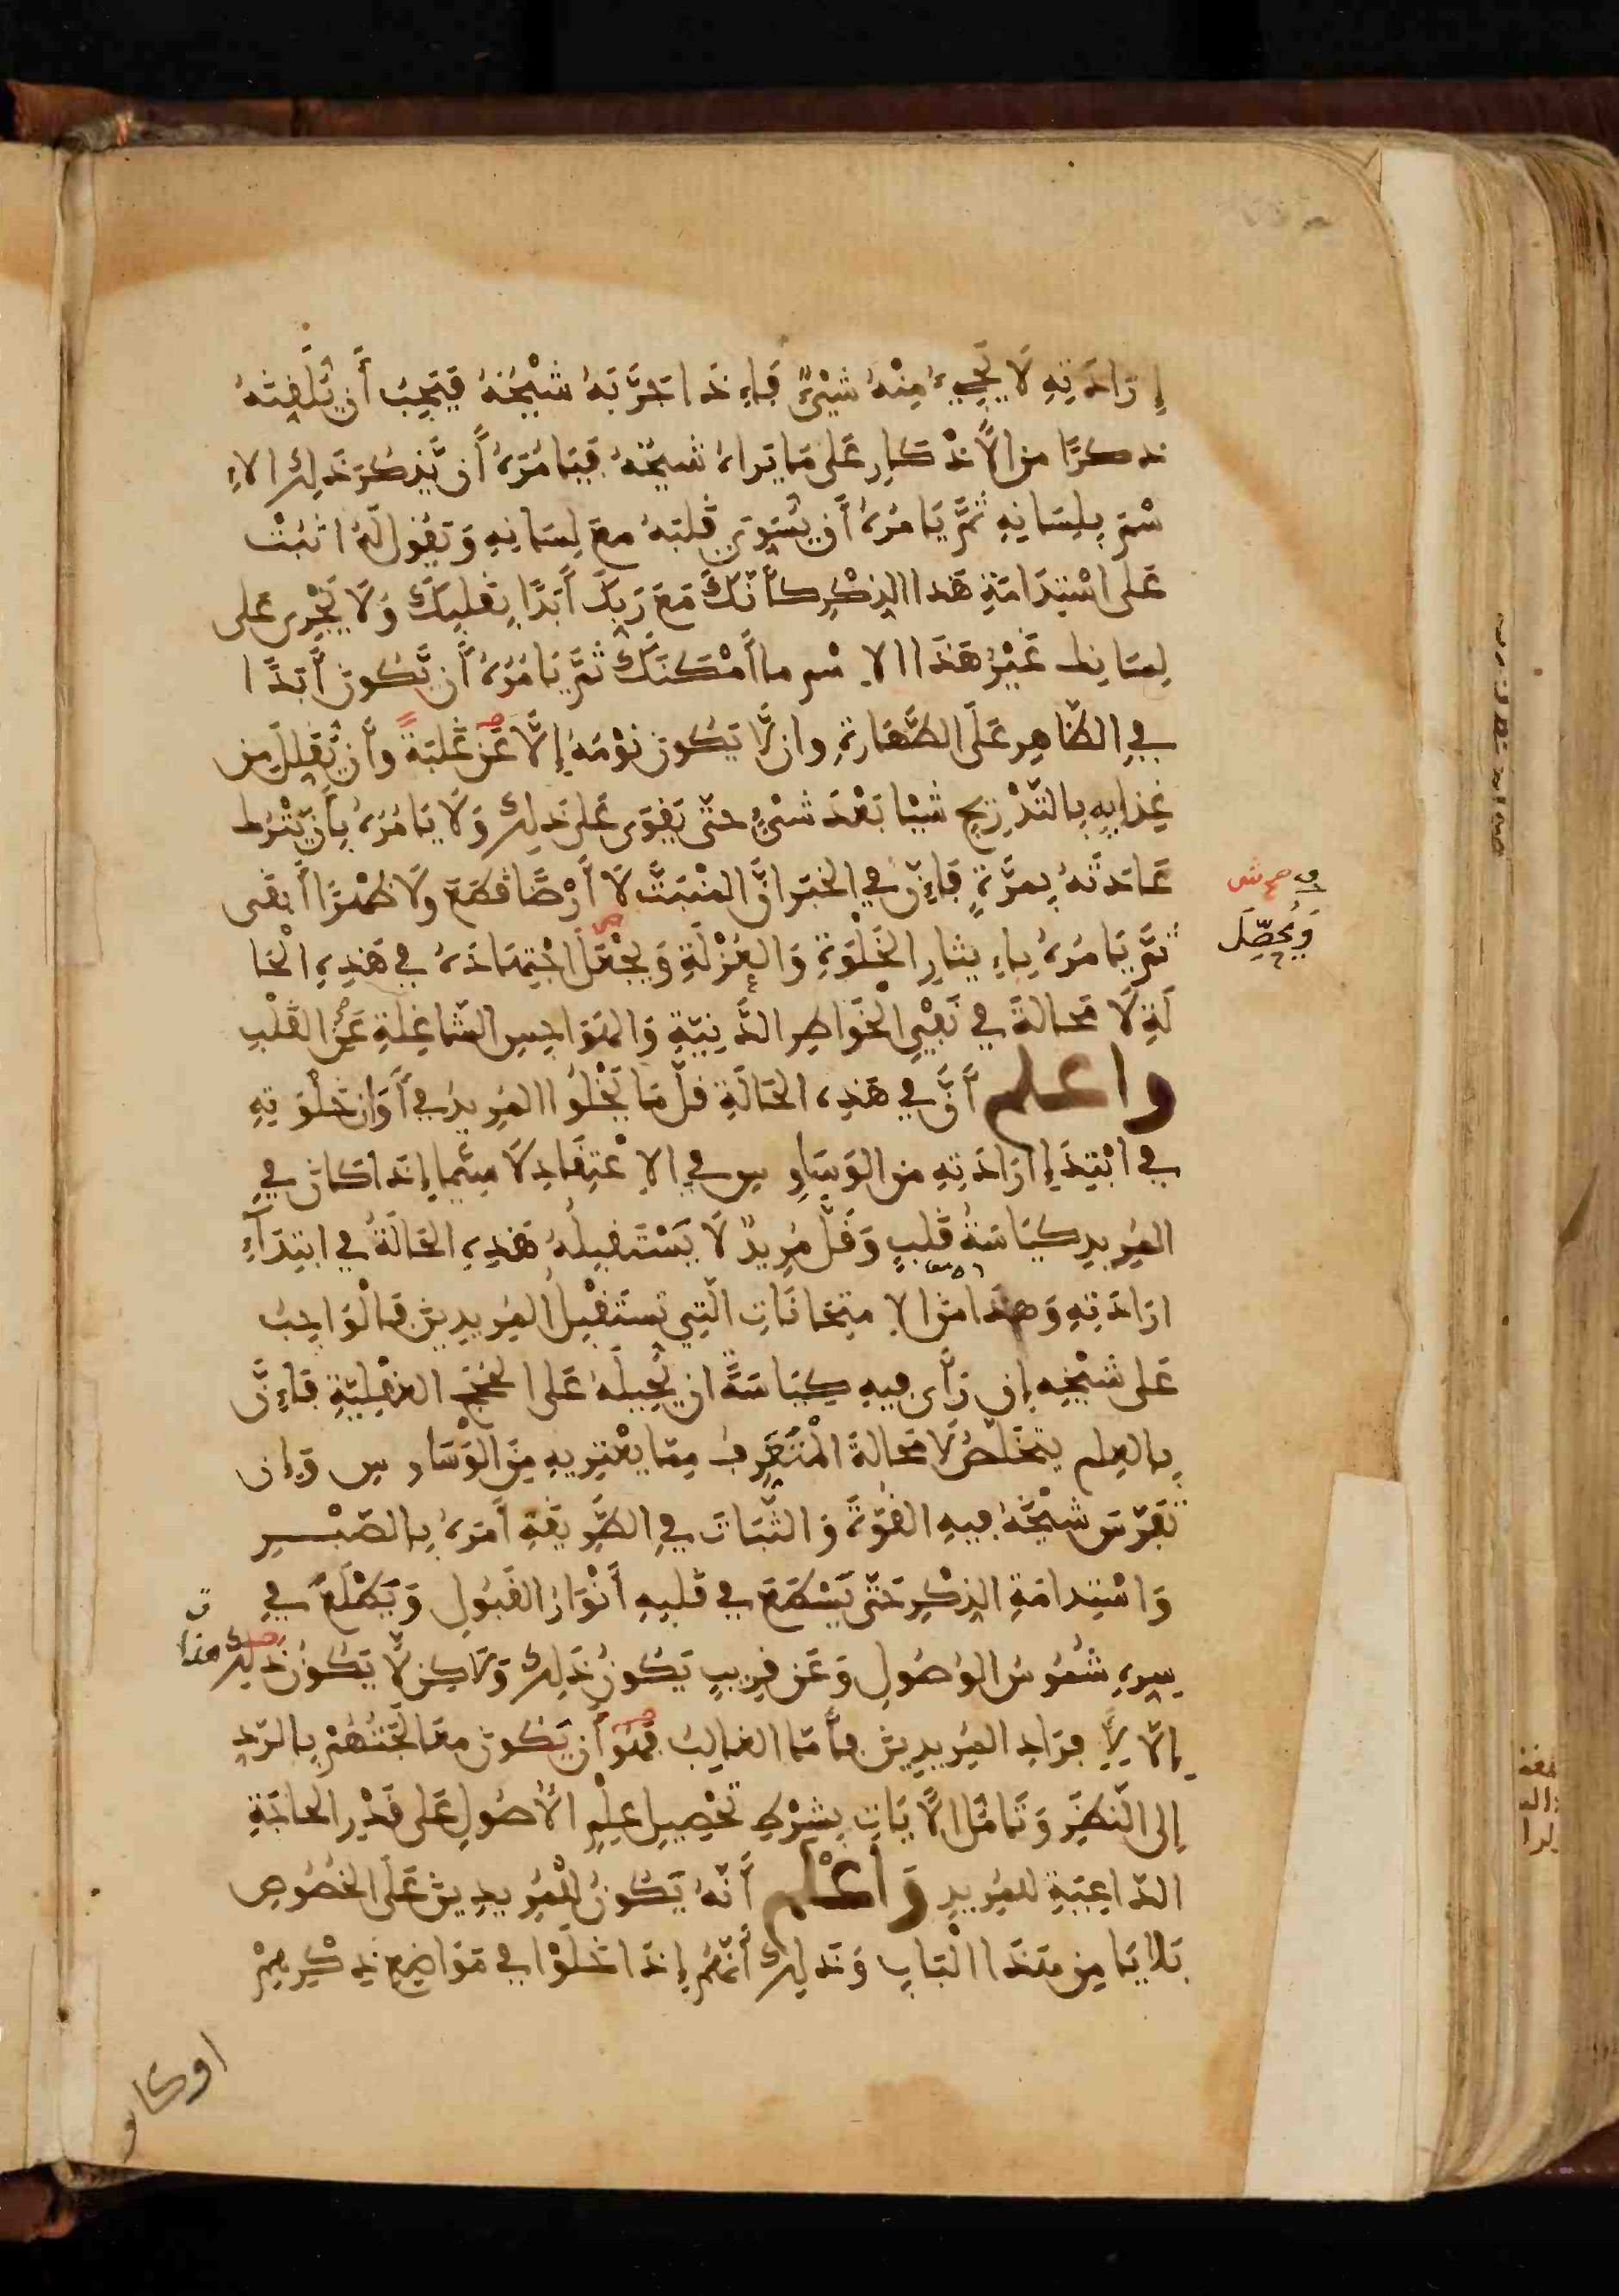 إِرَادَتِهِ لَا يَجِيءُ مِنْهُ شَيْءٌ فَإِذَا جَرَّبَهُ شَيْخُهُ فَيَجِبُ أَن يُّلَقِّنَهُ
ذكرًا من الأَذْكَارِ عَلَى مَا يَرَاهُ شَيْخُهُ فَيَامُرُهُ أَن يَّذْكُرَ ذَلِكَ الاِ
سْمَ بِلِسَانِهِ ثُمَّ يَامُرُهُ أَن يُسَوِّيَ قَلْبَهُ معَ لِسَانِهِ وَيَقُول لَهُ اثْبُتْ
عَلَى اسْتِدَامَةِ هَذَا الذِّكْرِ كأَنَّكَ مَعَ رَبِّكَ أَبَدًا بِقَلْبِكَ وَلَا يَجْرِى عَلَى
لِسَانِكَ غَيْرُ هَذَا الاِسْمِ ما أَمْكَنَكَ ثُمَّ يَامُرُهُ أَن يَّكُونَ أَبَدًا
فِي الظَّاهِرِ عَلَى الطَّهَارَةِ وان لَّا يَكُونَ نَوْمُهُ إِلَّا عَن غَلَبَةً وأَن يُّقَلِّلَ مِن
غِذَايِهِ بِالتَّدْرِيجِ شَيْئا بَعْدَ شَيْءٍ حتَّى يَقْوَى عَلَى ذَلِكَ وَلَا يَامُرُهُ بِأَن يَّتْرُكَ
عَادَتَهُ بِمَرَّةٍ فَإِنَّ فِي الخَبَرِ انَّ المُنْبَتَّ لَا أَرْضًا قَطَعَ ولَا ظَهْرًا أَبْقَى
ثُمَّ يَامُرُهُ بِإِيثَارِ الخَلْوَةِ وَالعُزْلَةِ وَيَجْعَلَ اجْتِهَادَهُ فِي هَذِهِ الْحَا
وَيُحصِّلَ
لَةِ لَا مَحَالَةَ فِي نَفْيِ الخَوَاطِرِ الدَّنِيَّةِ وَالهَوَاجِسِ الشَّاغِلَةِ عَنِ القَلْبِ
واعلم أَنَّ فِي هَذِهِ الحَالَةِ قلَّ مَا يَخْلُوا المُرِيدُ فِي أَوَانِ خَلْوَتِهِ
فِي ابْتِدَإِ ارَادَتِهِ من الوَسَاوِسِ فِي الاِعْتِقَادِ لَا سِيَّمَا إِذَا كَانَ فِي
المُرِيدِ كِيَاسَةُ قَلْبٍ وَقَلَّ مُرِيدٌ لَا يَسْتَقْبِلُهُ هَذِهِ الحَالَةُ فِي ابتِدَآءِ
ارَادَتِهِ وَهذَا مِنَ الاِمتِحَانَاتِ الَّتِي تَسْتَقْبِلُ المُرِيدِينَ فَالْوَاجِبُ
عَلَى شَيْخِهِ إِن رَّأَى فِيهِ كِيَاسَةً ان يُحِيلَهُ عَلَى الحُجَجِ العَقْلِيَّةِ فَإِنَّ
بِالعِلمِ يتخَلَّصُ لَا مَحَالَةَ الْمُتَعَرِّفُ مِمَّا يَعْتَرِيهِ مِنَ الوَسَاوِسِ وَإِن
تَفَرَّسَ شَيْخُهُ فِيهِ القُوَّةَ وَالثَّبَاتَ فِي الطَّرِيقَةِ أَمَرَهُ بِالصَّبْرِ
وَاسْتِدَامَةِ الذِّكْرِ حَتَّى يَسْطَعَ فِي قَلْبِهِ أَنْوَارُ القَبُولِ وَيَطْلُعَ فِي
سِرِّهِ شُمُوسُ الوُصُولِ وَعَن قَرِيبٍ يَكُونُ ذَلِكَ وَلَاكِن لَّا يَكُونُ ذَلِكَ هذا
إِلَّا لِأَفْرَادِ المُرِيدِينَ فأَمَّا الغَالِبُ فَهُوَ أَن يَّكُونَ مُعَالَجَتُهُمْ بِالرَّدِّ
إِلَى النَّظَرِ وَتَامُّلِ الْأَيَاتِ بِشَرْطِ تَحْصِيلِ عِلْمِ الأُصُولِ عَلَى قَدْرِ الحَاجَةِ
الدَّاعِيَةِ لِلمُرِيدِ وَاعْلَم أَنَّهُ يَكُونُ لِلْمُرِيدِينَ عَلَى الخُصُوصِ
بَلايَا مِن هَذَا الْبَابِ وَذَلِكَ أَنَّهُمْ إِذَا خَلَوْا فِي مَوَاضِعِ ذِكْرِهِمْ
اوكانو